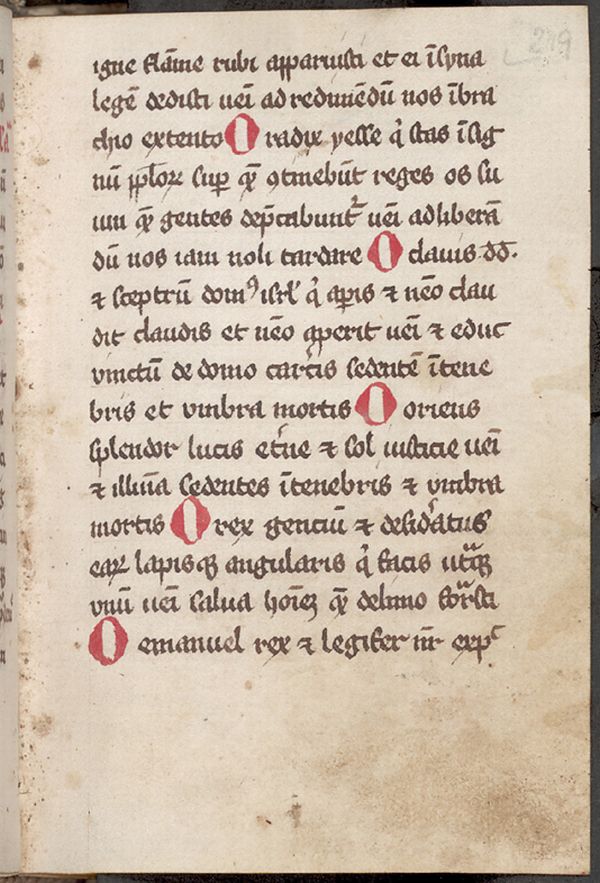 279
igne flāme rubi apparuisti et ei ī syna
legē dedisti ueī ad redimēdū nos ī bra
chio extento O radix yesse q̇ stas ī sig
nū pplorꝝ suꝑ quē ꝯtinebūt reges os su
um quē gentes dep̄cabuntᷣ ueī ad liberā
dū nos iam noli tardare O clauis dđ.
⁊ sceptrū domꝰ isrł q̇ aꝑis ⁊ nēo clau
dit claudis et nēo aperit ueī ⁊ educ
vinctū de domo carc̄is sedentē ī tene
bris et vmbra mortis O oriens
splendor lucis et̄ne ⁊ sol iusticie ueī
⁊ illūīa sedentes ī tenebris ⁊ vmbra
mortis O rex genciū ⁊ desid̄atus
earꝝ lapisqꝫ angularis q̇ facis utᷓqꝫ
vnū ueī salua hoīeꝫ quē de limo formᷓsti
O emanuel rex ⁊ legifer nr̄ expᶜ